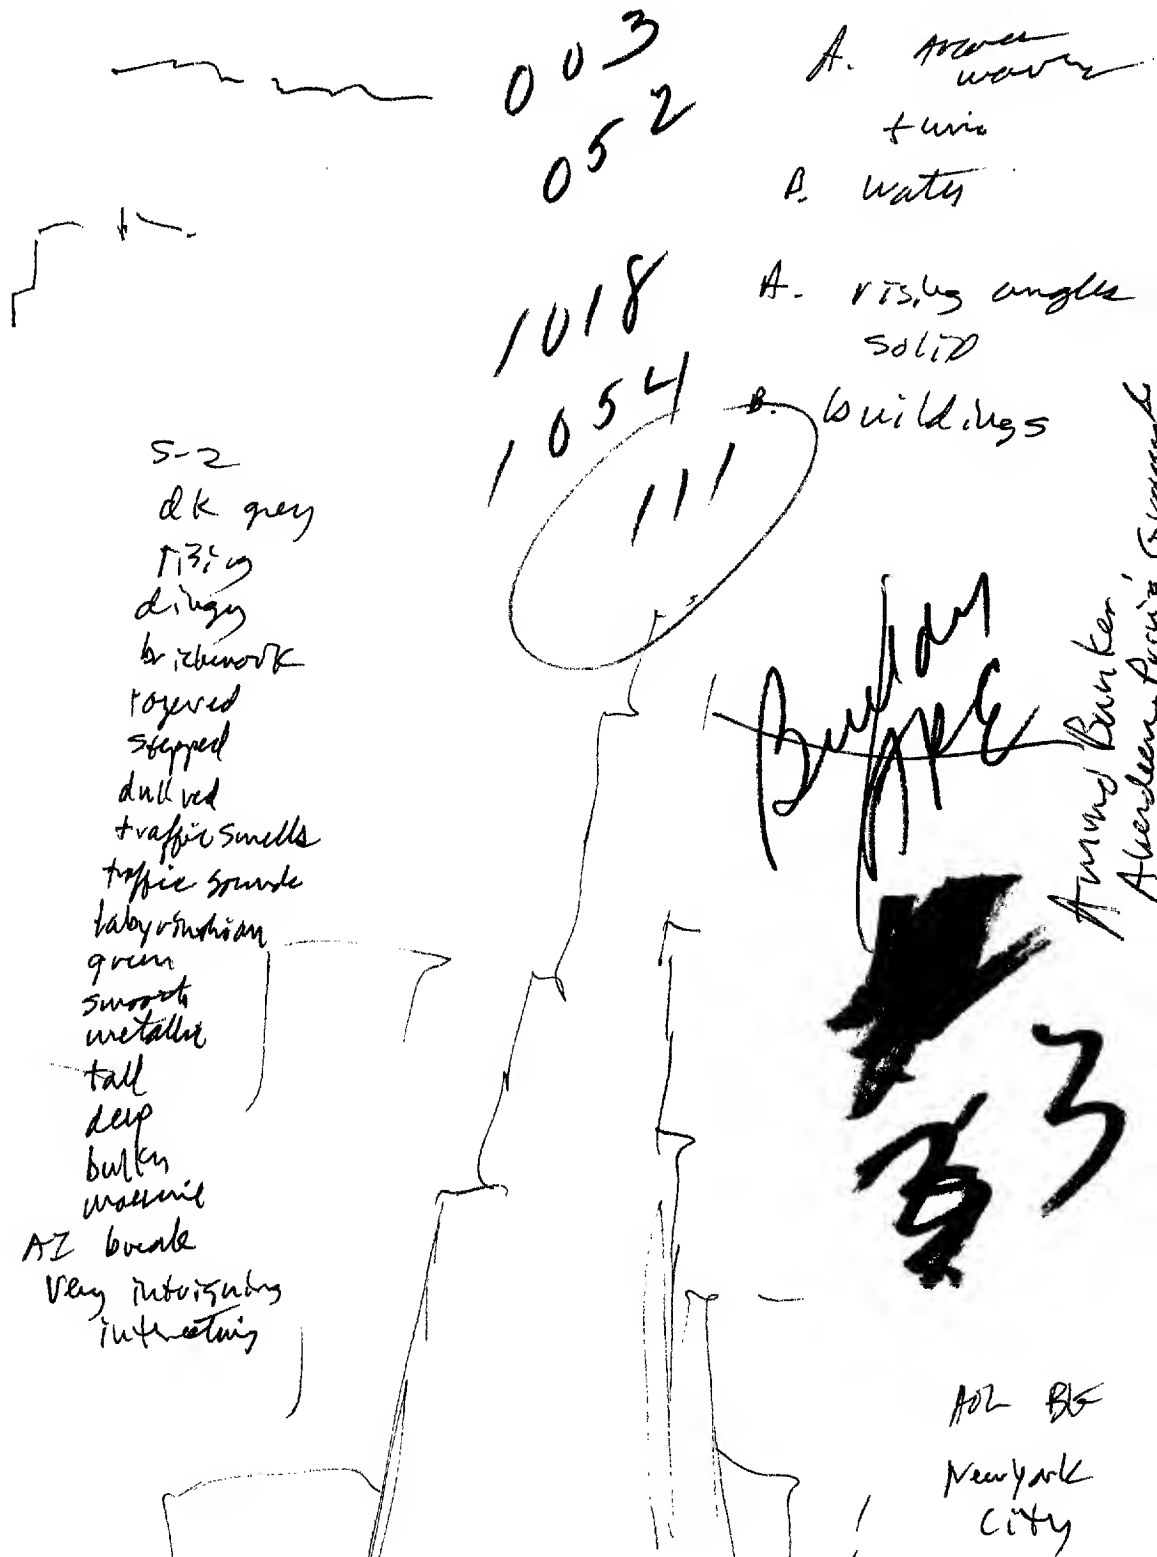 003
052
A.
wavy
B. water
1018
1054
A. rising angles
solid
B. buildings
111
S-2
dk grey
rising
dingy
brickwork
layered
stepped
dull red
traffic smells
traffic sounds
labyrinthian
green
smooth
metallic
tall
deep
bulky
massive
AI break
Very intriguing
interesting
Building
Bunker
Aberdeen Proving Grounds
3
AOL BK
New York
City